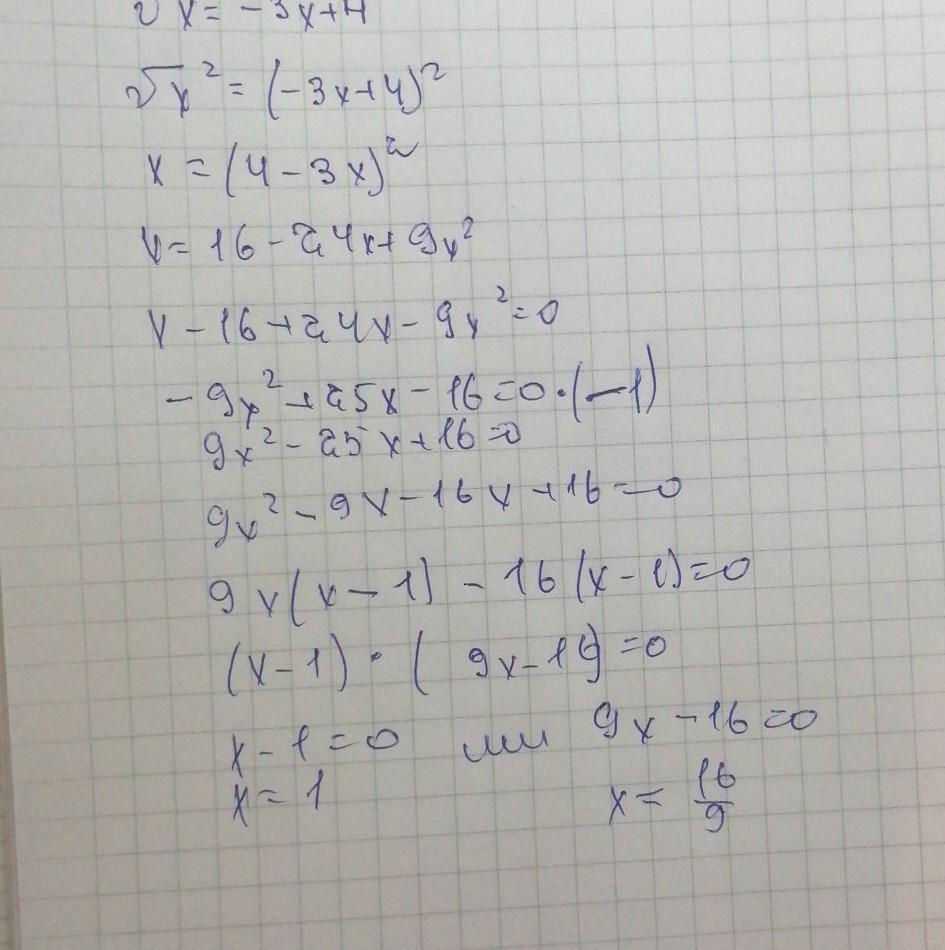 √x = -3x+4
√x² = (-3x+4)²
x = (4-3x)²
x = 16-24x+9x²
x-16+24x-9x²=0
-9x²+25x-16=0·(-1)
9x²-25x+16=0
9x²-9x-16x+16=0
9x(x-1)-16(x-1)=0
(x-1)·(9x-16)=0
x-1=0 или 9x-16=0
x=1 x=16/9